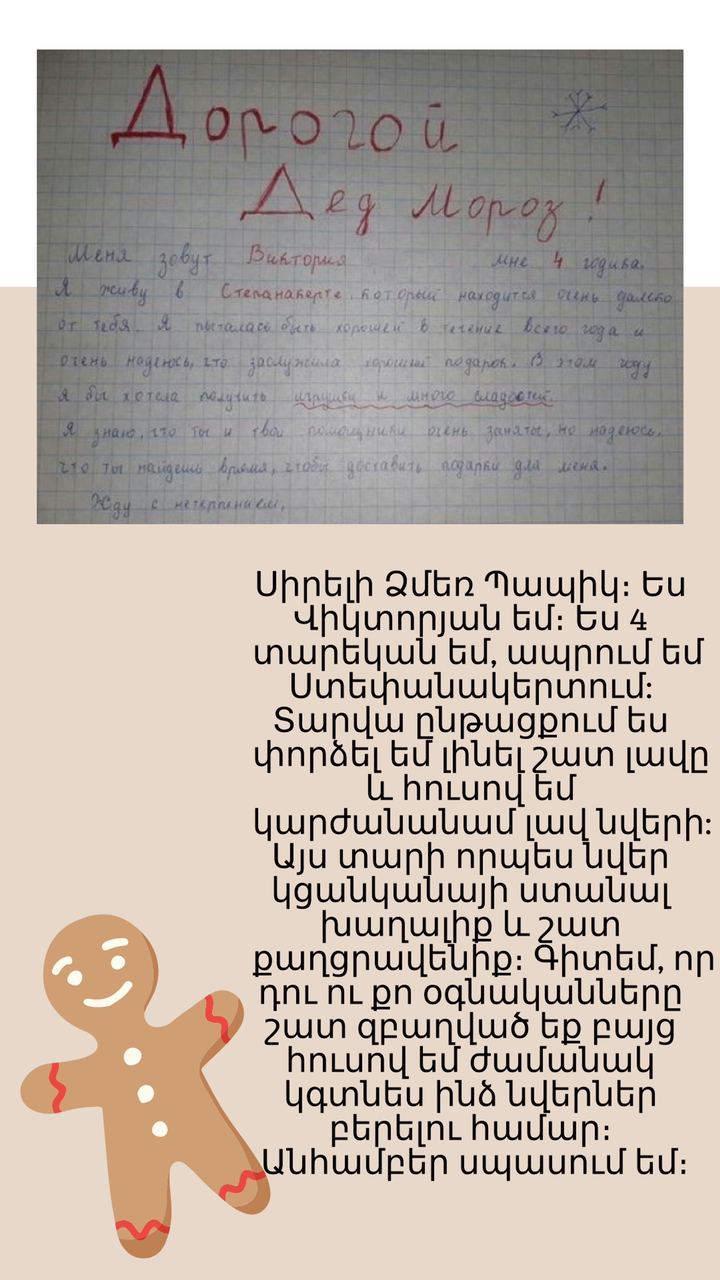 Дорогой
Дед Мороз!
Меня зовут Виктория мне 4 годика.
Я живу в Степанакерте, который находится очень далеко
от тебя. Я пыталась быть хорошей в течение всего года и
очень надеюсь, что заслужила хороший подарок. В этом году
я бы хотела получить игрушки и много сладостей.
Я знаю, что ты и твои помощники очень заняты, но надеюсь,
что ты найдешь время, чтобы доставить подарки для меня.
Жду с нетерпением,
Սիրելի Ձմեռ Պապիկ։ Ես
Վիկտորյան եմ։ Ես 4
տարեկան եմ, ապրում եմ
Ստեփանակերտում:
Տարվա ընթացքում ես
փորձել եմ լինել շատ լավը
և հուսով եմ
կարժանանամ լավ նվերի:
Այս տարի որպես նվեր
կցանկանայի ստանալ
խաղալիք և շատ
քաղցրավենիք։ Գիտեմ, որ
դու ու քո օգնականները
շատ զբաղված եք բայց
հուսով եմ ժամանակ
կգտնես ինձ նվերներ
բերելու համար։
Անհամբեր սպասում եմ։